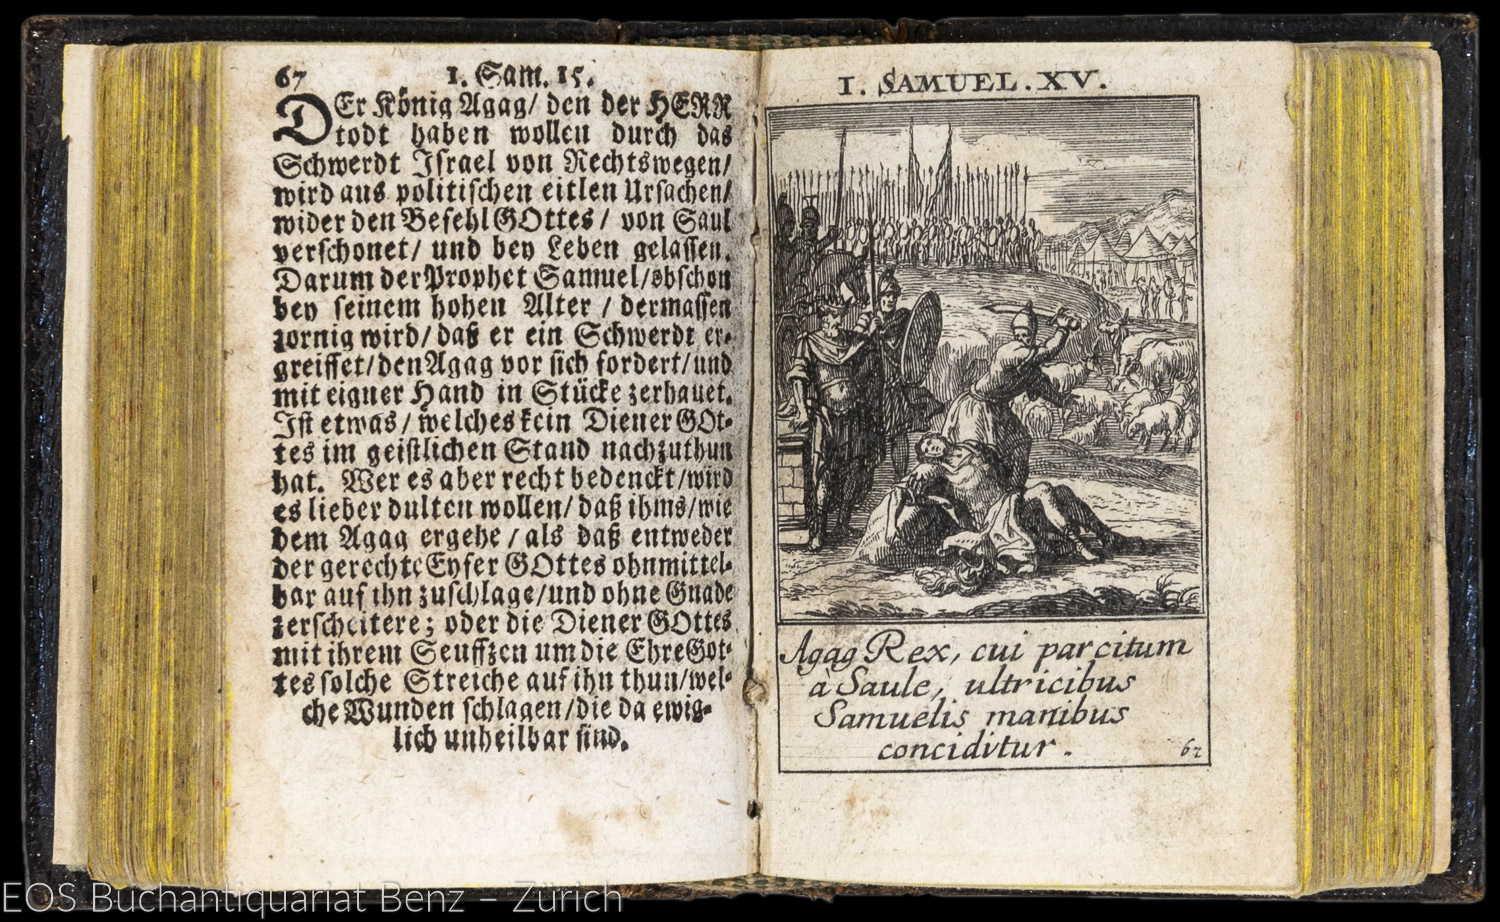 67 1. Sam. 15.
DEr König Agag/ den der HERR
todt haben wollen durch das
Schwerdt Israel von Rechtswegen/
wird aus politischen eitlen Ursachen/
wider den Befehl GOttes/ von Saul
verschonet/ und bey Leben gelassen.
Darum der Prophet Samuel/obschon
bey seinem hohen Alter / dermassen
zornig wird/ daß er ein Schwerdt er-
greiffet/den Agag vor sich fordert/und
mit eigner Hand in Stücke zerhauet.
Ist etwas/ welches kein Diener GOt-
tes im geistlichen Stand nachzuthun
hat. Wer es aber recht bedenckt/wird
es lieber dulten wollen/ daß ihms/wie
dem Agag ergehe / als daß entweder
der gerechte Eyfer GOttes ohnmittel-
bar auf ihn zuschlage/und ohne Gnade
zerscheitere; oder die Diener GOttes
mit ihrem Seuffzen um die Ehre Got-
tes solche Streiche auf ihn thun/wel-
che Wunden schlagen/die da ewig-
lich unheilbar sind.
I. SAMUEL. XV.
Agag Rex, cui parcitum
à Saule, ultricibus
Samuelis manibus
conciditur.
67
EOS Buchantiquariat Benz – Zürich